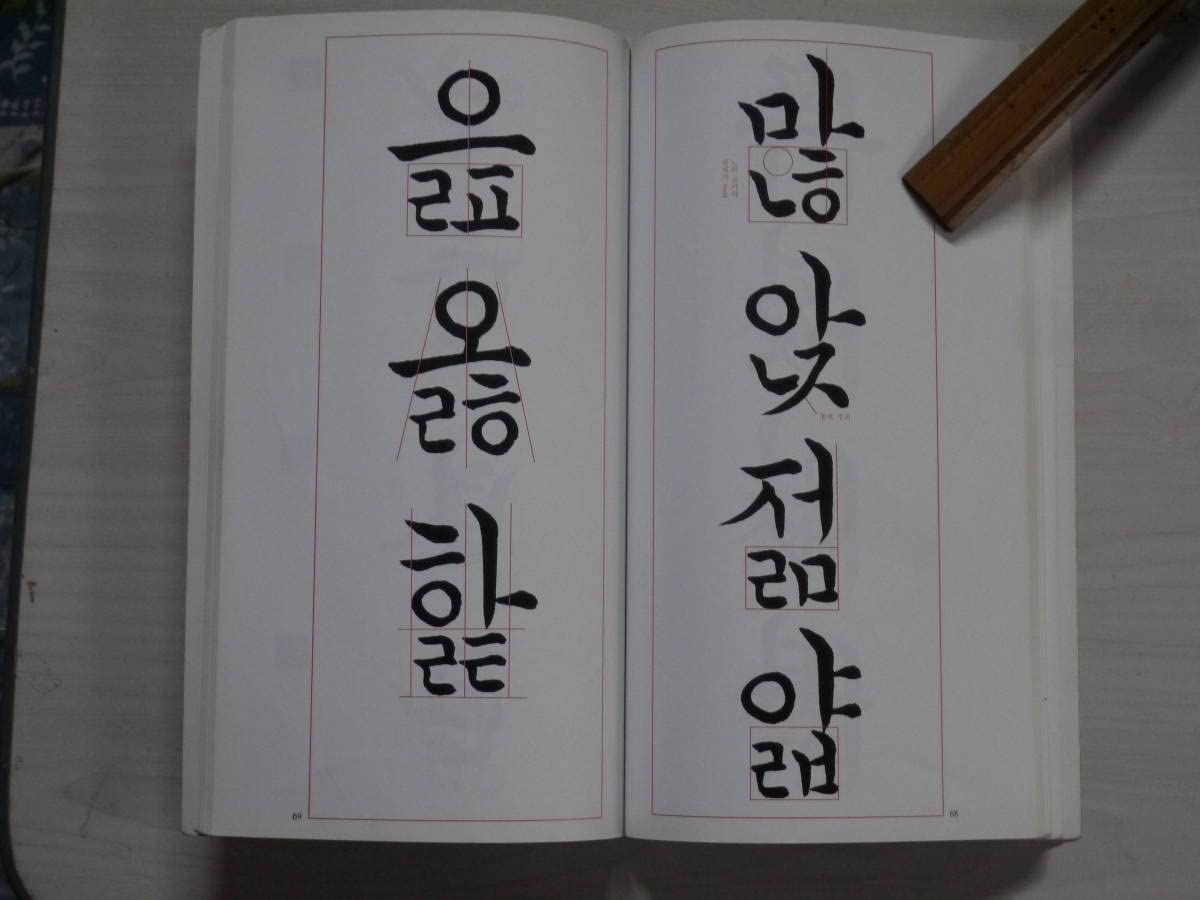 많
앉
젊
얇
68
읊
옳
핥
69